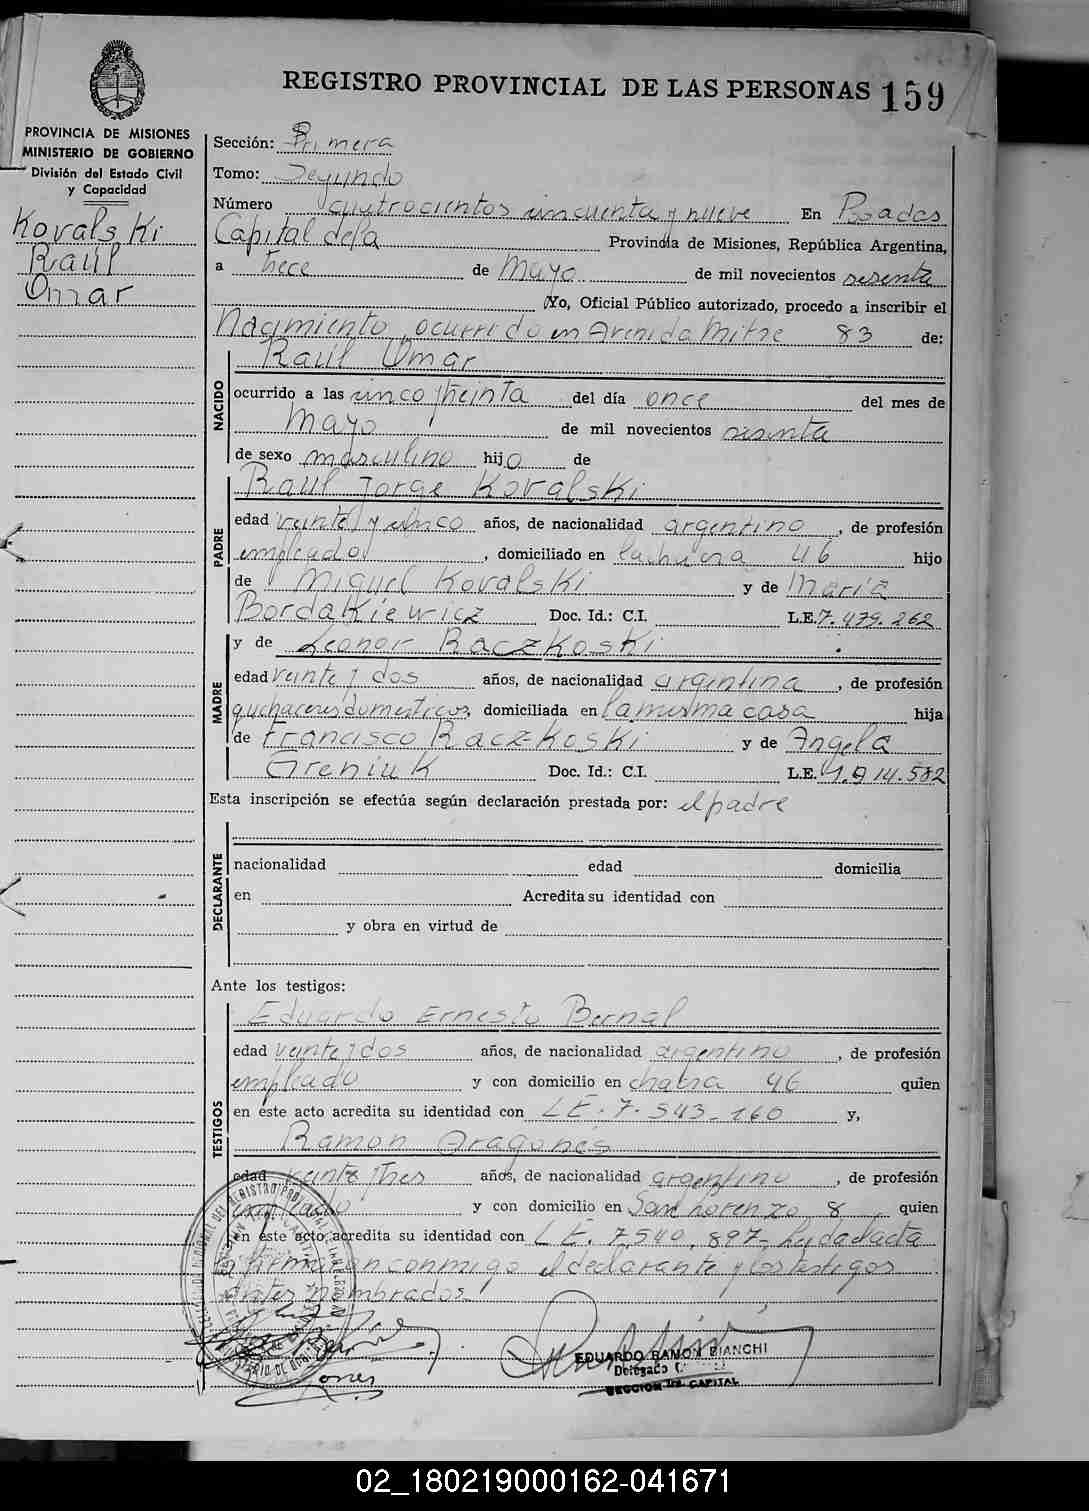 REGISTRO PROVINCIAL DE LAS PERSONAS 159
PROVINCIA DE MISIONES
MINISTERIO DE GOBIERNO
División del Estado Civil
y Capacidad
Kovalski
Raúl
Omar
Sección: Primera
Tomo: Segundo
Número cuatrocientos cincuenta y nueve En Posadas
Capital de la Provincia de Misiones, República Argentina,
a trece de Mayo de mil novecientos sesenta
Yo, Oficial Público autorizado, procedo a inscribir el
Nacimiento ocurrido en Avenida Mitre 83 de:
Raúl Omar
NACIDO
ocurrido a las cinco treinta del día once del mes de
Mayo de mil novecientos sesenta
de sexo masculino hijo de
Raúl Jorge Kovalski
PADRE
edad veinte y cinco años, de nacionalidad argentino, de profesión
empleado, domiciliado en 46 hijo
de Miguel Kovalski y de María
Bordakiewicz Doc. Id.: C.I. L.E. 7.479.262
y de Leonor Raczkoski
MADRE
edad veinte y dos años, de nacionalidad argentina, de profesión
quehaceres domesticos, domiciliada en la misma casa hija
de Francisco Raczkoski y de Angela
Greniuk Doc. Id.: C.I. L.E. 1.914.582
Esta inscripción se efectúa según declaración prestada por: el padre
DECLARANTE
nacionalidad edad domicilia
en Acredita su identidad con
y obra en virtud de
Ante los testigos:
Eduardo Ernesto Bernal
TESTIGOS
edad veinte y dos años, de nacionalidad argentino, de profesión
empleado y con domicilio en chacra 46 quien
en éste acto acredita su identidad con L E. 7.543.160 y,
Ramón Aragones
edad veinte tres años, de nacionalidad argentino, de profesión
empleado y con domicilio en San Lorenzo 8 quien
en éste acto acredita su identidad con L E. 7.540.897- Leyda el acta
firman conmigo el declarante y los testigos
antes nombrados.
EDUARDO RAMON BIANCHI
Delegado
SECCION DE CAPITAL
02_180219000162-041671